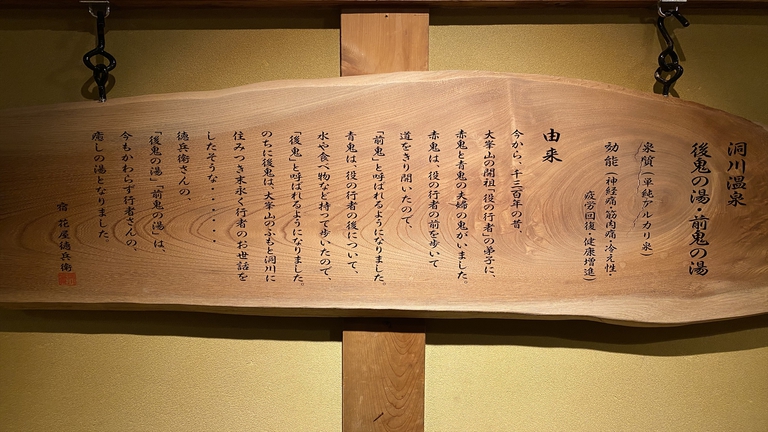 洞川温泉
後鬼の湯 前鬼の湯
泉質(単純アルカリ泉)
効能(神経痛・筋肉痛・冷え性・
疲労回復・健康増進)
由来
今から、千三百年の昔、
大峯山の開祖「役の行者」の弟子に、
赤鬼と青鬼の夫婦の鬼がいました。
赤鬼は、役の行者の前を歩いて
道をきり開いたので、
「前鬼」と呼ばれるようになりました。
青鬼は、役の行者の後について、
水や食べ物など持って歩いたので、
「後鬼」と呼ばれるようになりました。
のちに後鬼は、大峯山のふもと洞川に
住みつき末永く行者のお世話を
したそうな・・・・・
徳兵衛さんの、
「後鬼の湯」「前鬼の湯」は、
今もかわらず行者さんの、
癒しの湯となりました。
宿 花屋徳兵衛